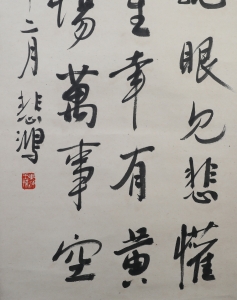 眼見悲懽
生幸有黃
萬事空
二月悲鴻